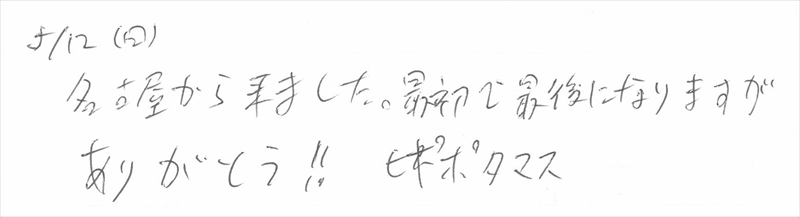 5/12(日)
名古屋から来ました。最初で最後になりますが
ありがとう!! ヒポポタマス